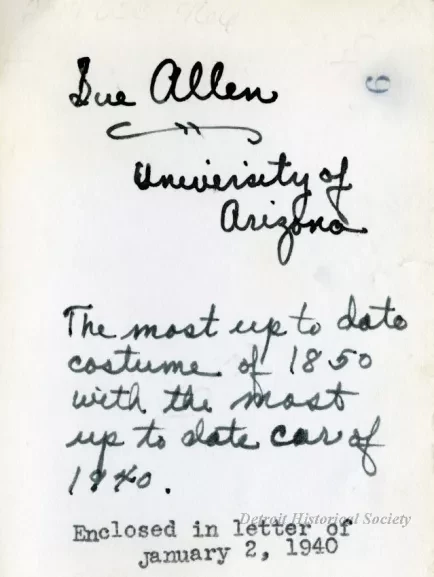 Sue Allen
6
University of
Arizona
The most up to date
costume of 1850
with the most
up to date car of
1940.
Detroit Historical Society
Enclosed in letter of
january 2, 1940